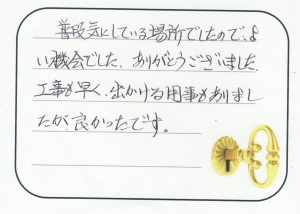 普段気にしている場所でしたので、よ
い機会でした。ありがとうございました。
工事も早く、出かける用事がありまし
たが、良かったです。